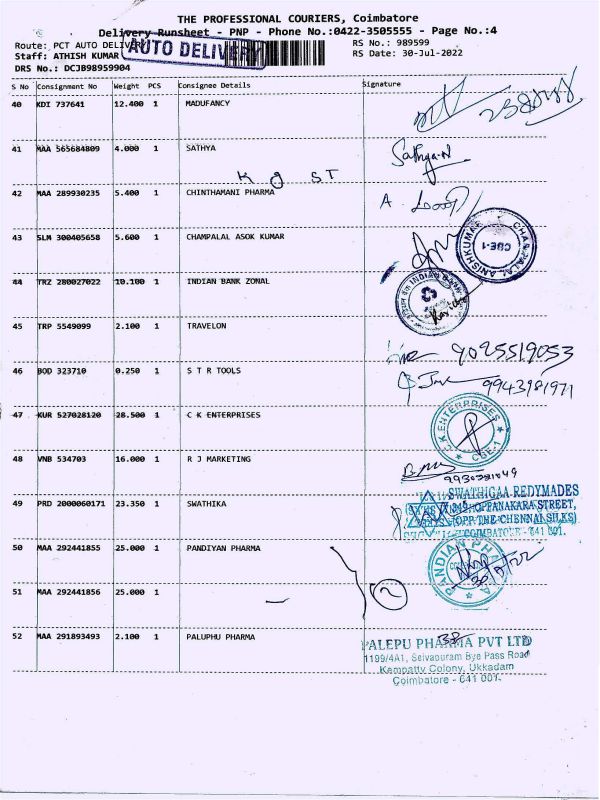 THE PROFESSIONAL COURIERS, Coimbatore
Delivery Runsheet - PNP - Phone No.:0422-3505555 - Page No.:4
Route: PCT AUTO DELIVERY
AUTO DELIVERY
RS No.: 989599
Staff: ATHISH KUMAR
RS Date: 30-Jul-2022
DRS No.: DCJB98959904
S No Consignment No Weight PCS Consignee Details Signature
40 KDI 737641 12.400 1 MADUFANCY
41 MAA 565684809 4.000 1 SATHYA Sathya.N
K g ST
42 MAA 289930235 5.400 1 CHINTHAMANI PHARMA A.
43 SLM 300405658 5.600 1 CHAMPALAL ASOK KUMAR
CHAMPALAL ANISHKUMAR CBE-1
44 TRZ 280027022 10.100 1 INDIAN BANK ZONAL
INDIAN BANK
45 TRP 5549099 2.100 1 TRAVELON
9025519053
46 BOD 323710 0.250 1 S T R TOOLS
9943981971
47 KUR 527028120 28.500 1 C K ENTERPRISES
C K ENTERPRISES CBE-1
48 VNB 534703 16.000 1 R J MARKETING
9930381049
49 PRD 2000060171 23.350 1 SWATHIKA
SWATHIGAA REDYMADES
OPPANAKARA STREET,
(OPP. THE CHENNAI SILKS)
COIMBATORE - 641 001.
50 MAA 292441855 25.000 1 PANDIYAN PHARMA
PANDIAN PHARMA
30/7/22
51 MAA 292441856 25.000 1
2
52 MAA 291893493 2.100 1 PALUPHU PHARMA
PALEPU PHARMA PVT LTD
1199/4A1, Selvapuram Bye Pass Road
Kempatty Colony, Ukkadam
Coimbatore - 641 001.